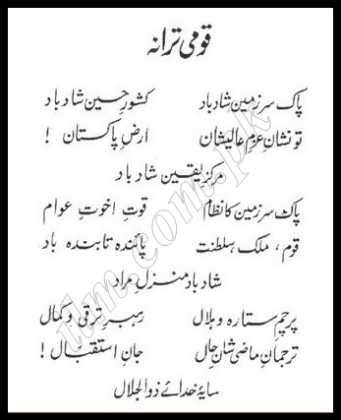 قومی ترانہ
پاک سرزمین شاد باد کشورِ حسین شاد باد
تو نشانِ عزمِ عالیشان ارضِ پاکستان !
مرکزِ یقین شاد باد
پاک سرزمین کا نظام قوتِ اخوتِ عوام
قوم ، ملک سلطنت پائندہ تابندہ باد
شاد باد منزلِ مراد
پرچمِ ستارہ و ہلال رہبرِ ترقی و کمال
ترجمانِ ماضی شانِ حال جانِ استقبال !
سایۂ خدائے ذوالجلال
ilm.com.pk